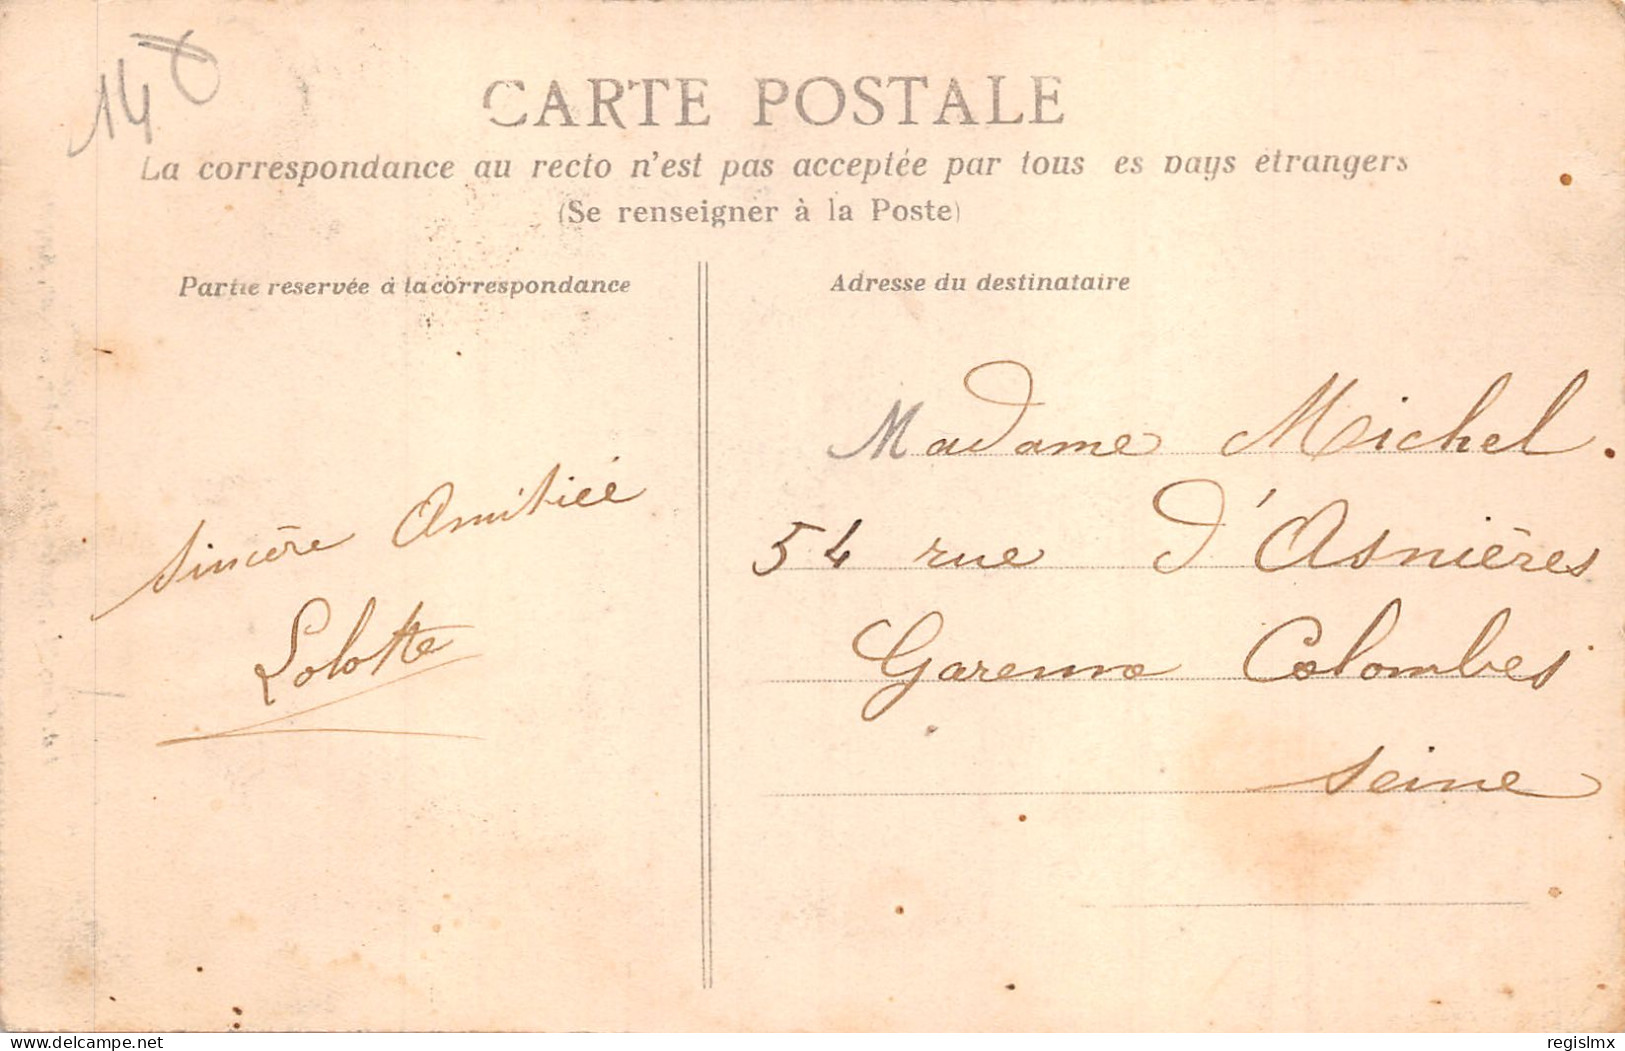 CARTE POSTALE
La correspondance au recto n'est pas acceptée par tous es pays étrangers
(Se renseigner à la Poste)
Partie reservée à la correspondance
Sincère Amitiée
Lolotte
Adresse du destinataire
Madame Michel.
54 rue d'Asnières
Garenne Colombes
Seine
delcampe.net
regislmx